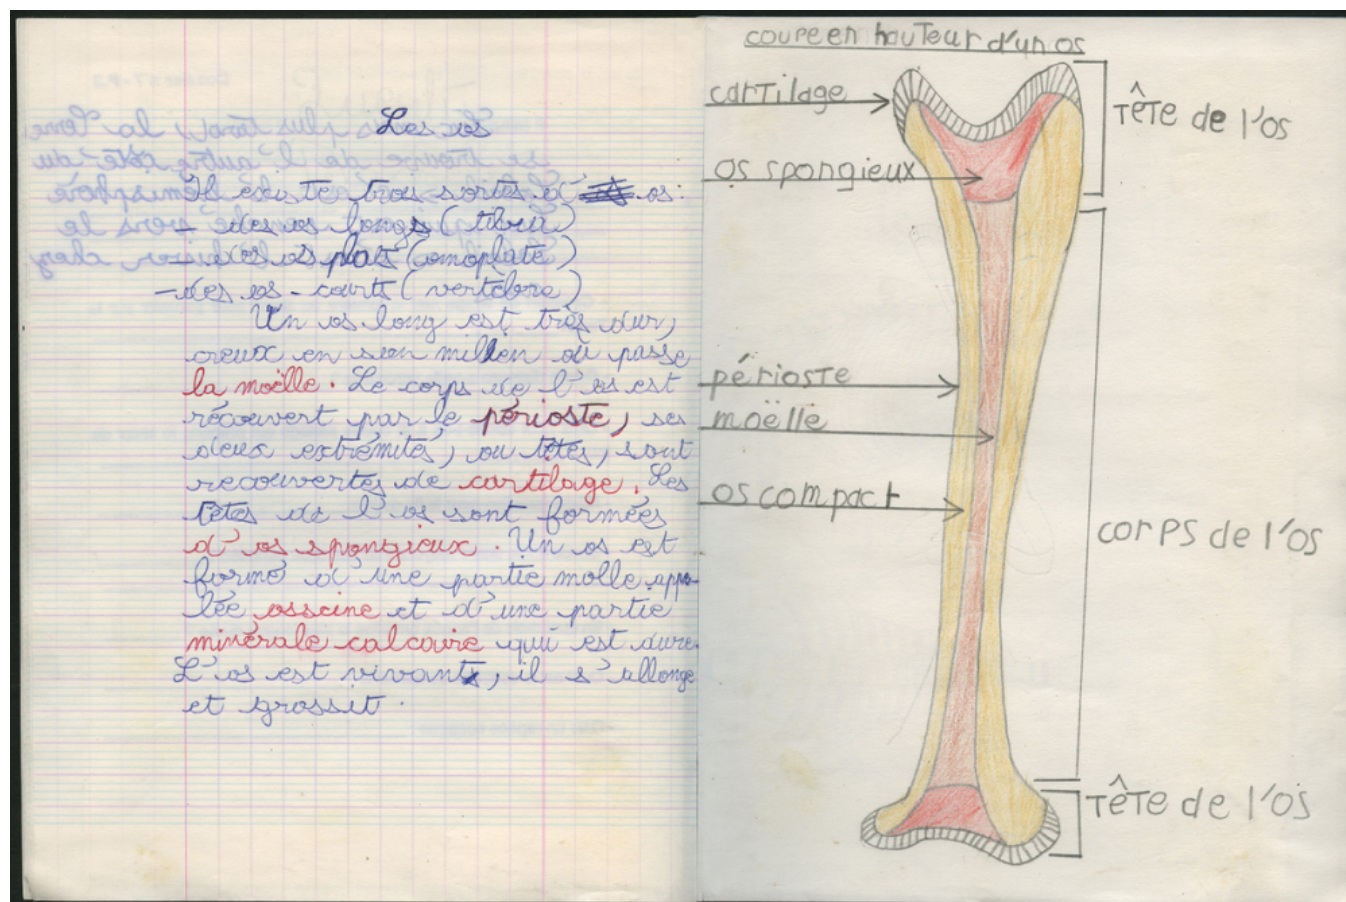 Les os
Il existe trois sortes d' os :
- des os longs (tibia)
- des os plat (omoplate)
- des os - courts (vertebre)
Un os long est très dur,
creux en son milieu où passe
la moëlle. Le corps de l'os est
récouvert par le périoste, ses
deux extrémité, ou têtes, sont
recouvertes de cartilage. Les
têtes de l'os sont formées
d'os spongieux. Un os est
formé d'une partie molle appe-
lée osseine et d'une partie
minérale calcaire qui est dure.
L'os est vivant, il s'allonge
et grossit.
coupe en hauteur d'un os
cartilage
TÊTE de l'os
os spongieux
périoste
moëlle
os compact
corps de l'os
TÊTE de l'os